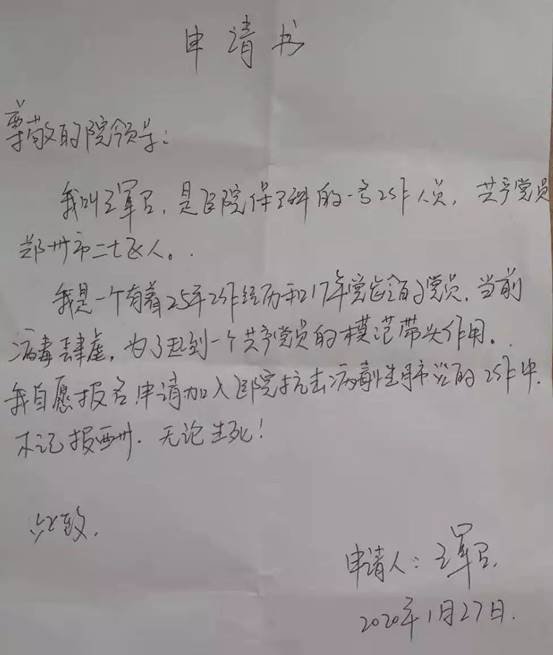 申请书
尊敬的院领导:
我叫王军卫,是医院保卫科的一名工作人员,共产党员
郑州市二七区人。.
我是一个有着25年工作经历和17年党龄的党员,当前
病毒肆虐,为了起到一个共产党员的模范带头作用。.
我自愿报名申请加入医院抗击病毒性肺炎的工作中.
不记报酬.无论生死!
此致.
申请人:王军
2020年1月27日.